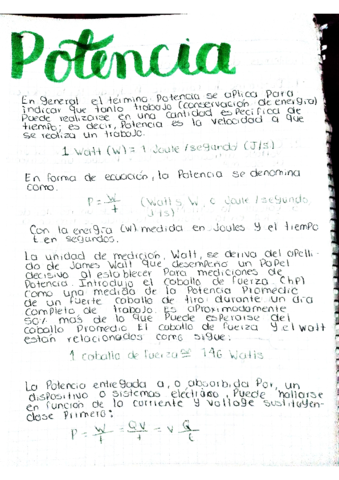 Potencia
En general el término Potencia se aplica Para
indicar que tanto trabajo (conservación de energía)
Puede realizarse en una cantidad específica de
tiempo; es decir, Potencia es la velocidad a que
se realiza un trabajo.
1 Watt (W) = 1 Joule / segundo (J/s)
En forma de ecuación, la Potencia se denomina
como.
P = W/t (Watts, W, o Joule / segundo,
J/s)
Con la energía (W) medida en Joules y el tiempo
t en segundos.
La unidad de medición, Watt, se deriva del apelli-
do de James Watt que desempeño un Papel
decisivo al establecer Para mediciones de
Potencia. Introdujo el caballo de fuerza (hP)
como una medida de la Potencia Promedio
de un fuerte caballo de tiro durante un día
completo de trabajo. Es aproximadamente
50% más de lo que Puede esperarse del
caballo Promedio El caballo de fuerza y el Watt
están relacionados como sigue:
1 caballo de fuerza ≅ 746 Watts
La Potencia entregada a, o absorbida Por, un
dispositivo o sistemas eléctrico, Puede hallarse
en función de la corriente y voltage sustituyén-
dose Primero:
P = W/t = QV/t = V Q/t